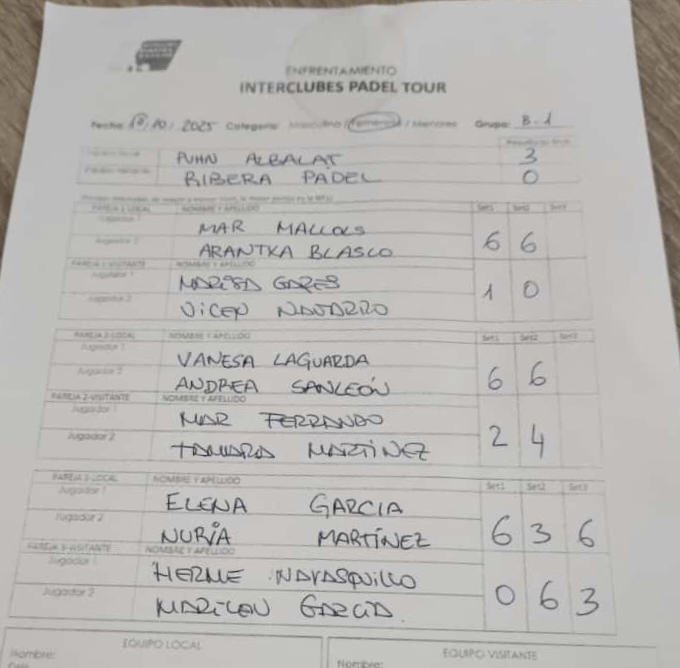 ENFRENTAMIENTO
INTERCLUBES PADEL TOUR
Fecha: 18/10/2025 Categoria: Masculino / Femenino / Menores Grupo: B-1
PUHN ALBALAT 3
RIBERA PADEL 0
PAREJA 1-LOCAL NOMBRE Y APELLIDO Set1 Set2 Set3
Jugador 1 MAR MALLOLS
Jugador 2 ARANTXA BLASCO 6 6
PAREJA 1-VISITANTE NOMBRE Y APELLIDO
Jugador 1 MARISA GARES
Jugador 2 VICEN NAVARRO 1 0
PAREJA 2-LOCAL NOMBRE Y APELLIDO Set1 Set2 Set3
Jugador 1 VANESA LAGUARDA
Jugador 2 ANDREA SANLEÓN 6 6
PAREJA 2-VISITANTE NOMBRE Y APELLIDO
Jugador 1 MAR FERRANDO
Jugador 2 TAMARA MARTINEZ 2 4
PAREJA 3-LOCAL NOMBRE Y APELLIDO Set1 Set2 Set3
Jugador 1 ELENA GARCIA
Jugador 2 NURIA MARTÍNEZ 6 3 6
PAREJA 3-VISITANTE NOMBRE Y APELLIDO
Jugador 1 HERME NAVASQUILLO
Jugador 2 MARILOU GARCIA. 0 6 3
EQUIPO LOCAL EQUIPO VISITANTE
Nombre: Nombre: